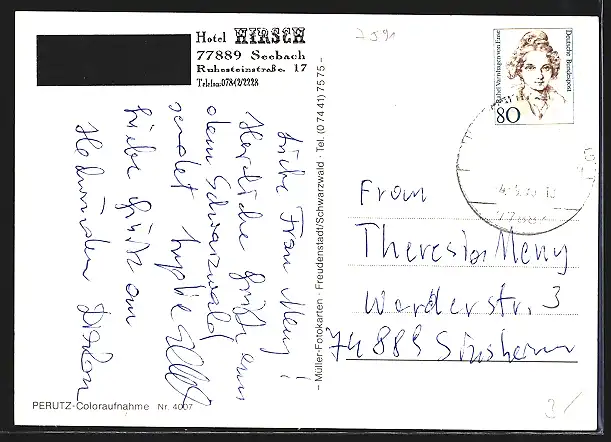 Hotel HIRSCH
77889 Seebach
Ruhesteinstraße 17
Telefon: 07842/2228
Liebe Frau Meny!
Herzliche Grüße aus
dem Schwarzwald
sendet
Liebe Grüße an
PERUTZ-Coloraufnahme Nr. 4007
– Müller-Fotokarten · Freudenstadt/Schwarzwald · Tel. (0 74 41) 75 75 –
Rahel Varnhagen von Ense
Deutsche Bundespost
80
Frau
Theresia Meny
Werderstr. 3
74889 Sinsheim